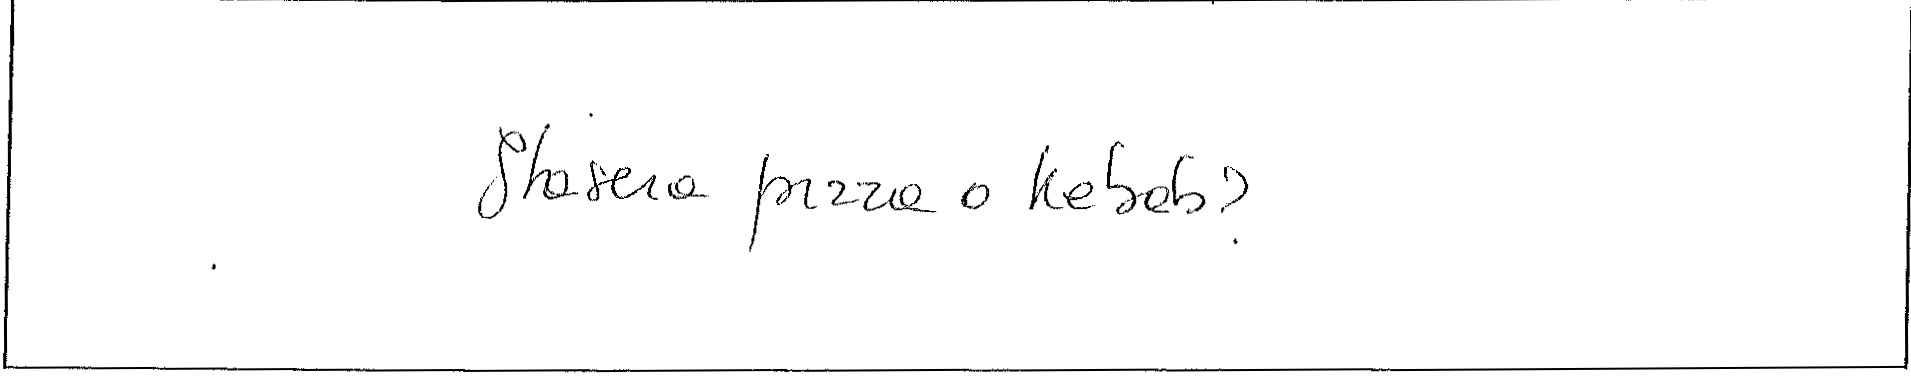 Stasera pizza o kebab?